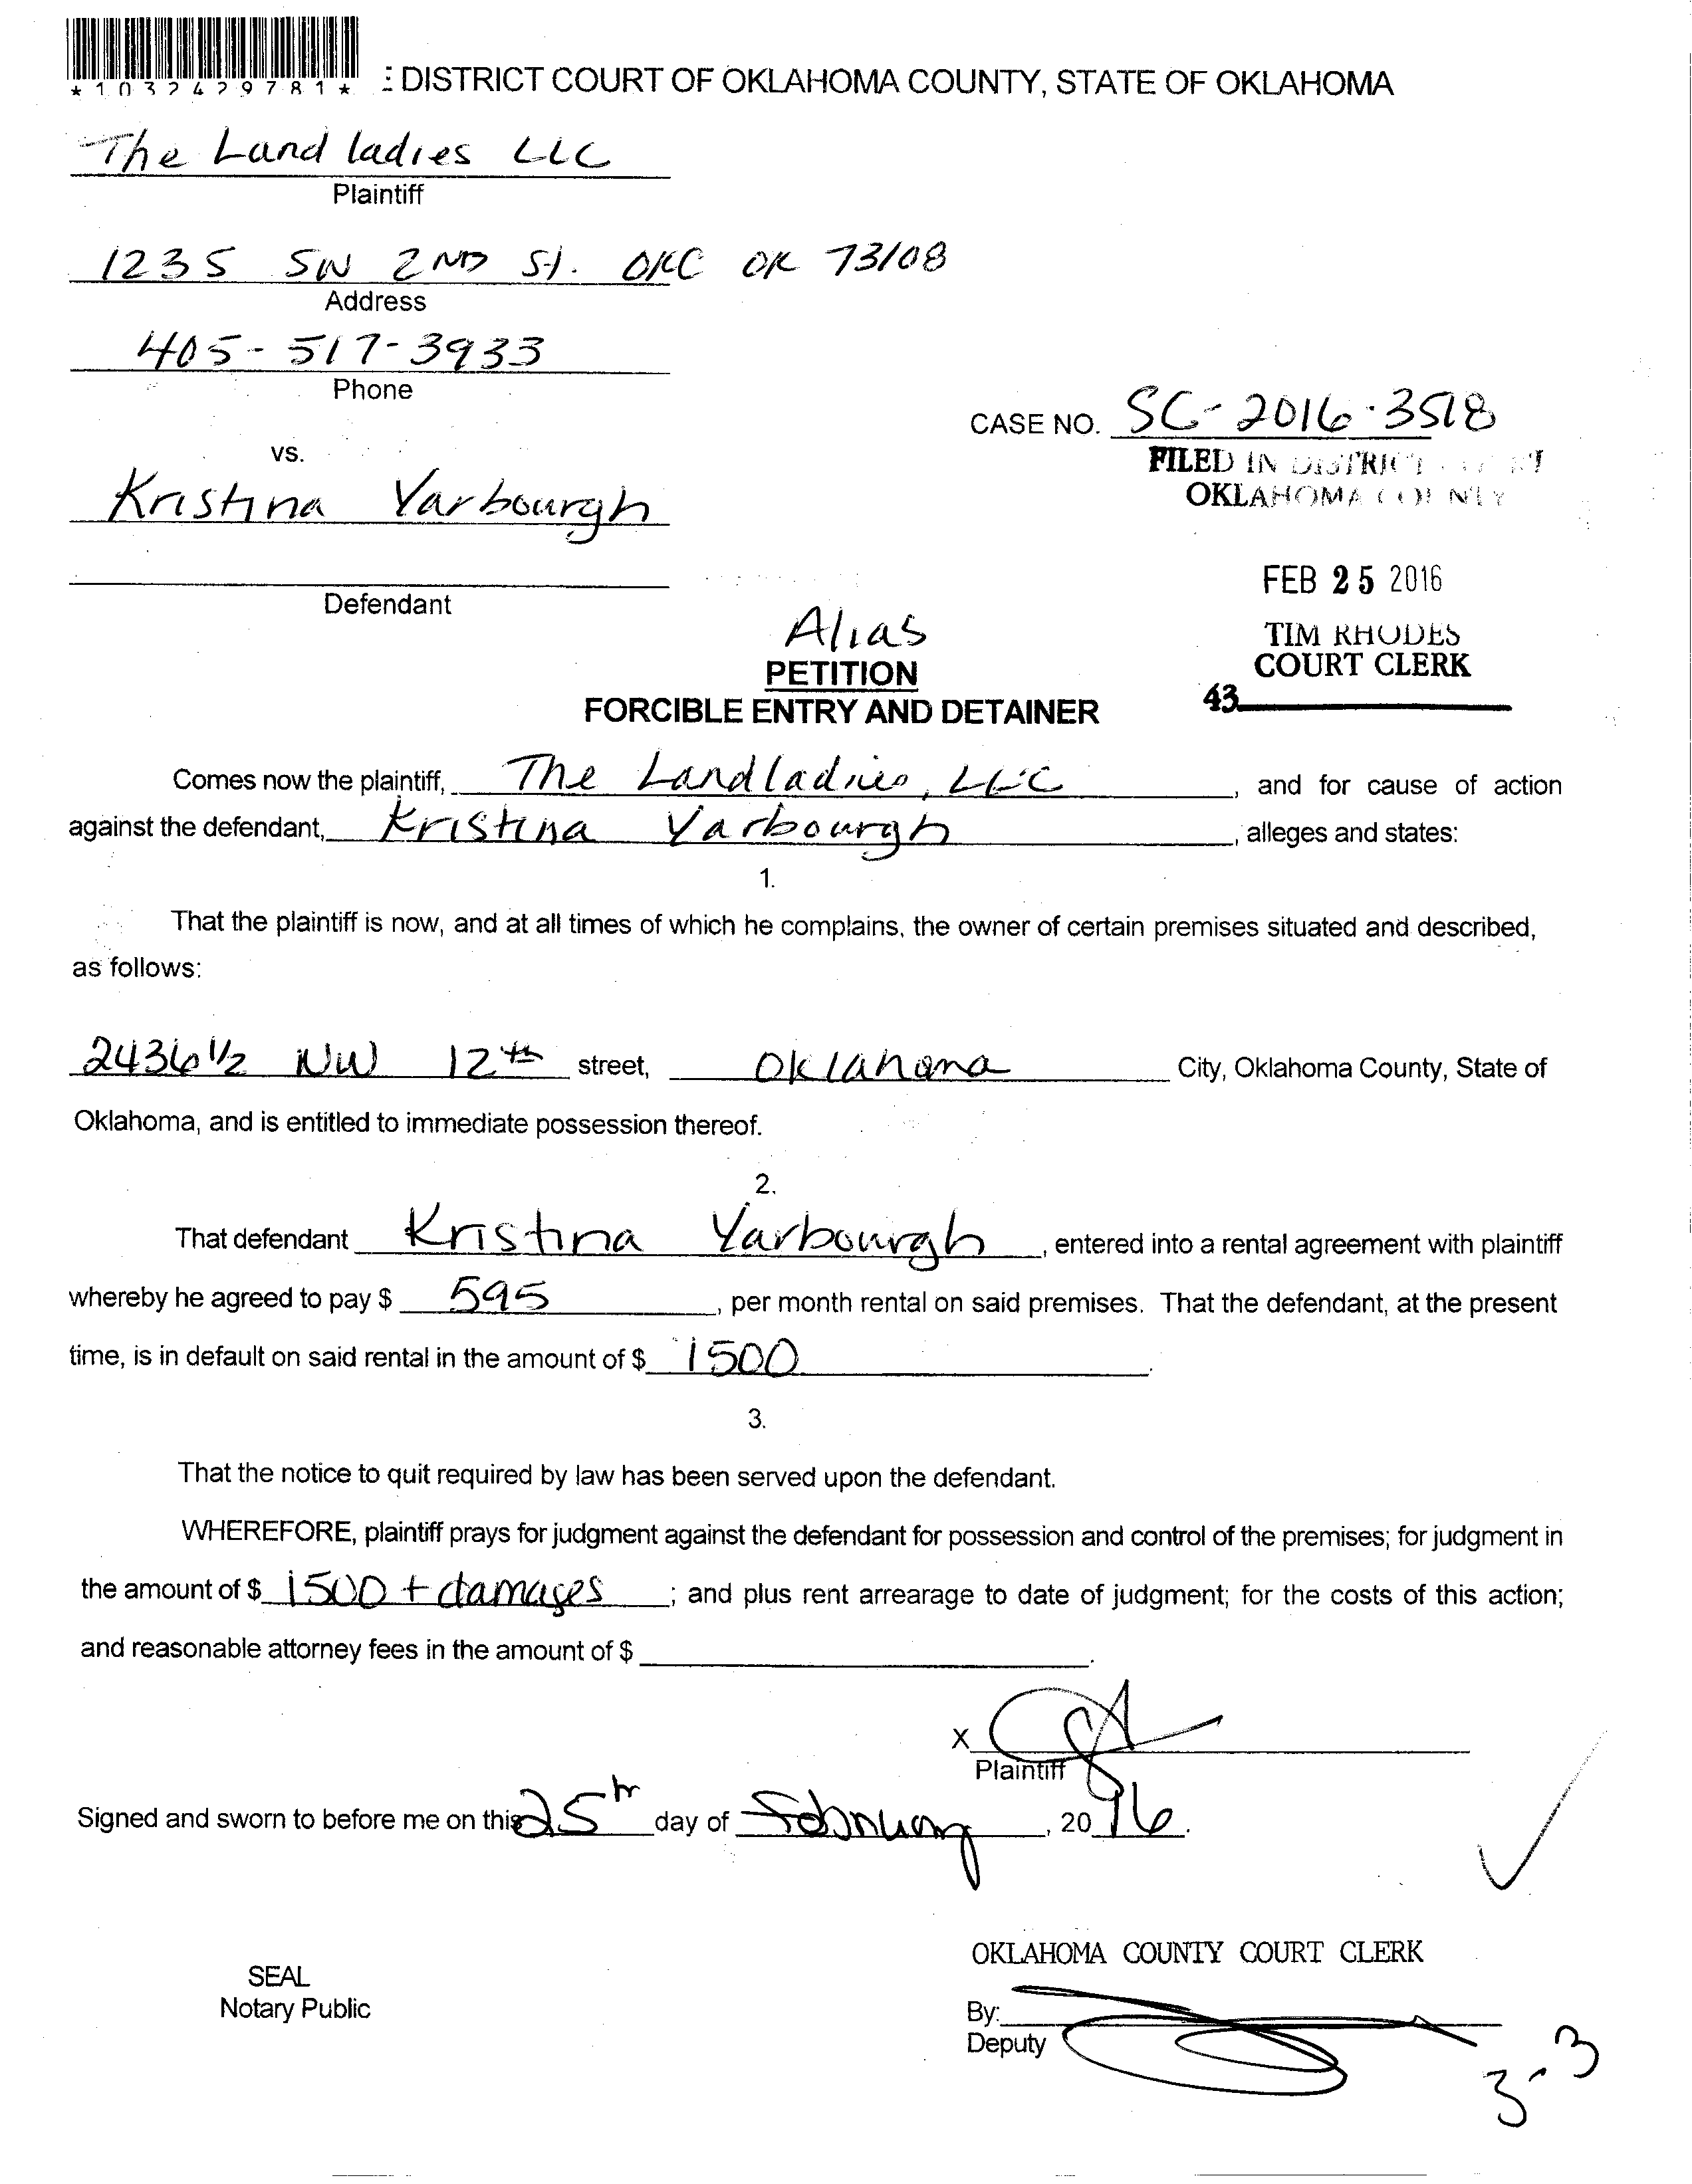 *1032429781*
E DISTRICT COURT OF OKLAHOMA COUNTY, STATE OF OKLAHOMA
The Land ladies LLC
Plaintiff
1235 SW 2ND St. OKC OK 73108
Address
405-517-3933
Phone
CASE NO. SC-2016-3518
vs.
FILED IN DISTRICT COURT
OKLAHOMA COUNTY
Kristina Yarbourgh
FEB 25 2016
Defendant
TIM RHODES
Alias
COURT CLERK
PETITION
43
FORCIBLE ENTRY AND DETAINER
Comes now the plaintiff, The Landladies, LLC, and for cause of action
against the defendant, Kristina Yarbourgh, alleges and states:
1.
That the plaintiff is now, and at all times of which he complains, the owner of certain premises situated and described,
as follows:
2436 1/2 NW 12th street, Oklahoma City, Oklahoma County, State of
Oklahoma, and is entitled to immediate possession thereof.
2.
That defendant Kristina Yarbourgh, entered into a rental agreement with plaintiff
whereby he agreed to pay $ 595, per month rental on said premises. That the defendant, at the present
time, is in default on said rental in the amount of $ 1500.
3.
That the notice to quit required by law has been served upon the defendant.
WHEREFORE, plaintiff prays for judgment against the defendant for possession and control of the premises; for judgment in
the amount of $ 1500 + damages; and plus rent arrearage to date of judgment; for the costs of this action;
and reasonable attorney fees in the amount of $
X
Plaintiff
Signed and sworn to before me on this 25th day of February, 20 16.
OKLAHOMA COUNTY COURT CLERK
SEAL
Notary Public
By:
Deputy
3-3